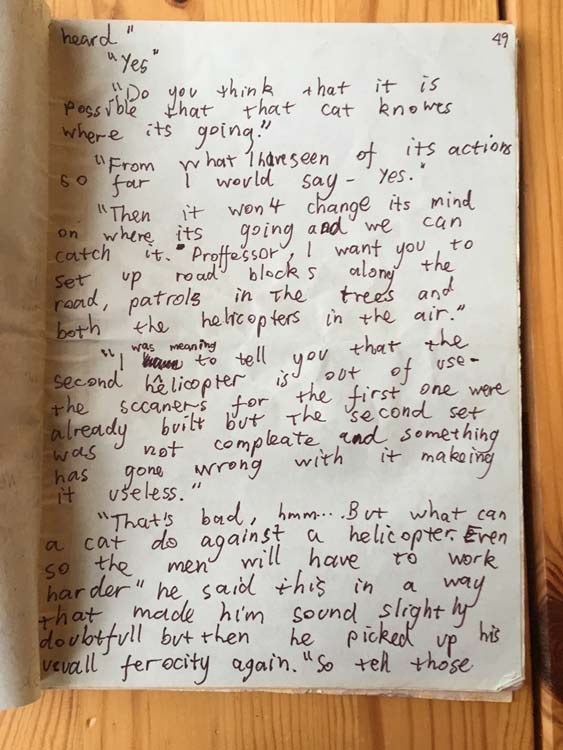 49
heard"
"Yes"
"Do you think that it is
possible that that cat knowes
where its going."
"From what I have seen of its actions
so far I would say - yes."
"Then it won4 change its mind
on where its going and we can
catch it." Proffessor, I want you to
set up road blocks along the
road, patrols in the trees and
both the helicopters in the air."
was meaning
"I to tell you that the
second helicopter is out of use-
the sccaners for the first one were
already built but the second set
was not compleate and something
has gone wrong with it makeing
it useless."
"That's bad, hmm.... But what can
a cat do against a helicopter. Even
so the men will have to work
harder" he said this in a way
that made him sound slightly
doubtfull but then he picked up his
usuall ferocity again. "So tell those